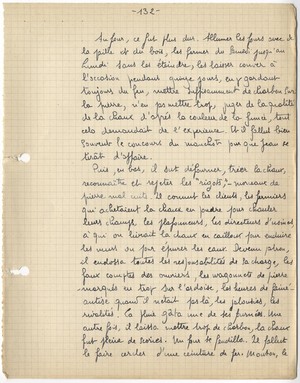 - 132 -
Au four, ce fut plus dur. Allumer les fours avec de
la paille et du bois, les fermer du samedi jusqu'au
lundi sans les éteindre, les laisser couver à
l'occasion pendant quinze jours, en y gardant
toujours du feu, mettre suffisamment de charbon sur
la pierre, n'en pas mettre trop, juger de la qualité
de la chaux d'après la couleur de la fumée, tout
cela demandait de l'expérience. Et il fallut bien
souvent le concours du manchot pour que Jean se
tirât d'affaire.
Puis, en bas, il sut défourner, trier la chaux,
reconnaître et rejeter les "rigots", morceaux de
pierre mal cuits. Il connut les clients, les fermiers
qui achetaient la chaux en poudre pour chauler
leurs champs, les plafonneurs, les directeurs d'usines
à qui on livrait la chaux en cailloux pour enduire
les murs ou pour épurer les eaux. Devenu
il endossa toutes les responsabilités de la charge, les
faux comptes des ouvriers, les wagonnets de pierre
marqués en trop sur l'ardoise, les heures de
quand il n'était pas là, les jalousies, les
rivalités. La pluie gâta une de ses fournées. Une
autre fois, il laissa mettre trop de charbon, la chaux
fut pleine de Un four se fendilla. Il fallut
le faire cercler d'une ceinture de fer.